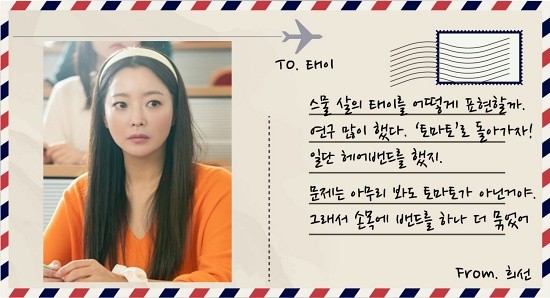 TO. 태이
스물 살의 태이를 어떻게 표현할까.
연구 많이 했다. '토마토'로 돌아가자!
일단 헤어밴드를 했지.
문제는 아무리 봐도 토마토가 아닌거야.
그래서 손목에 밴드를 하나 더 묶었어
From. 희선